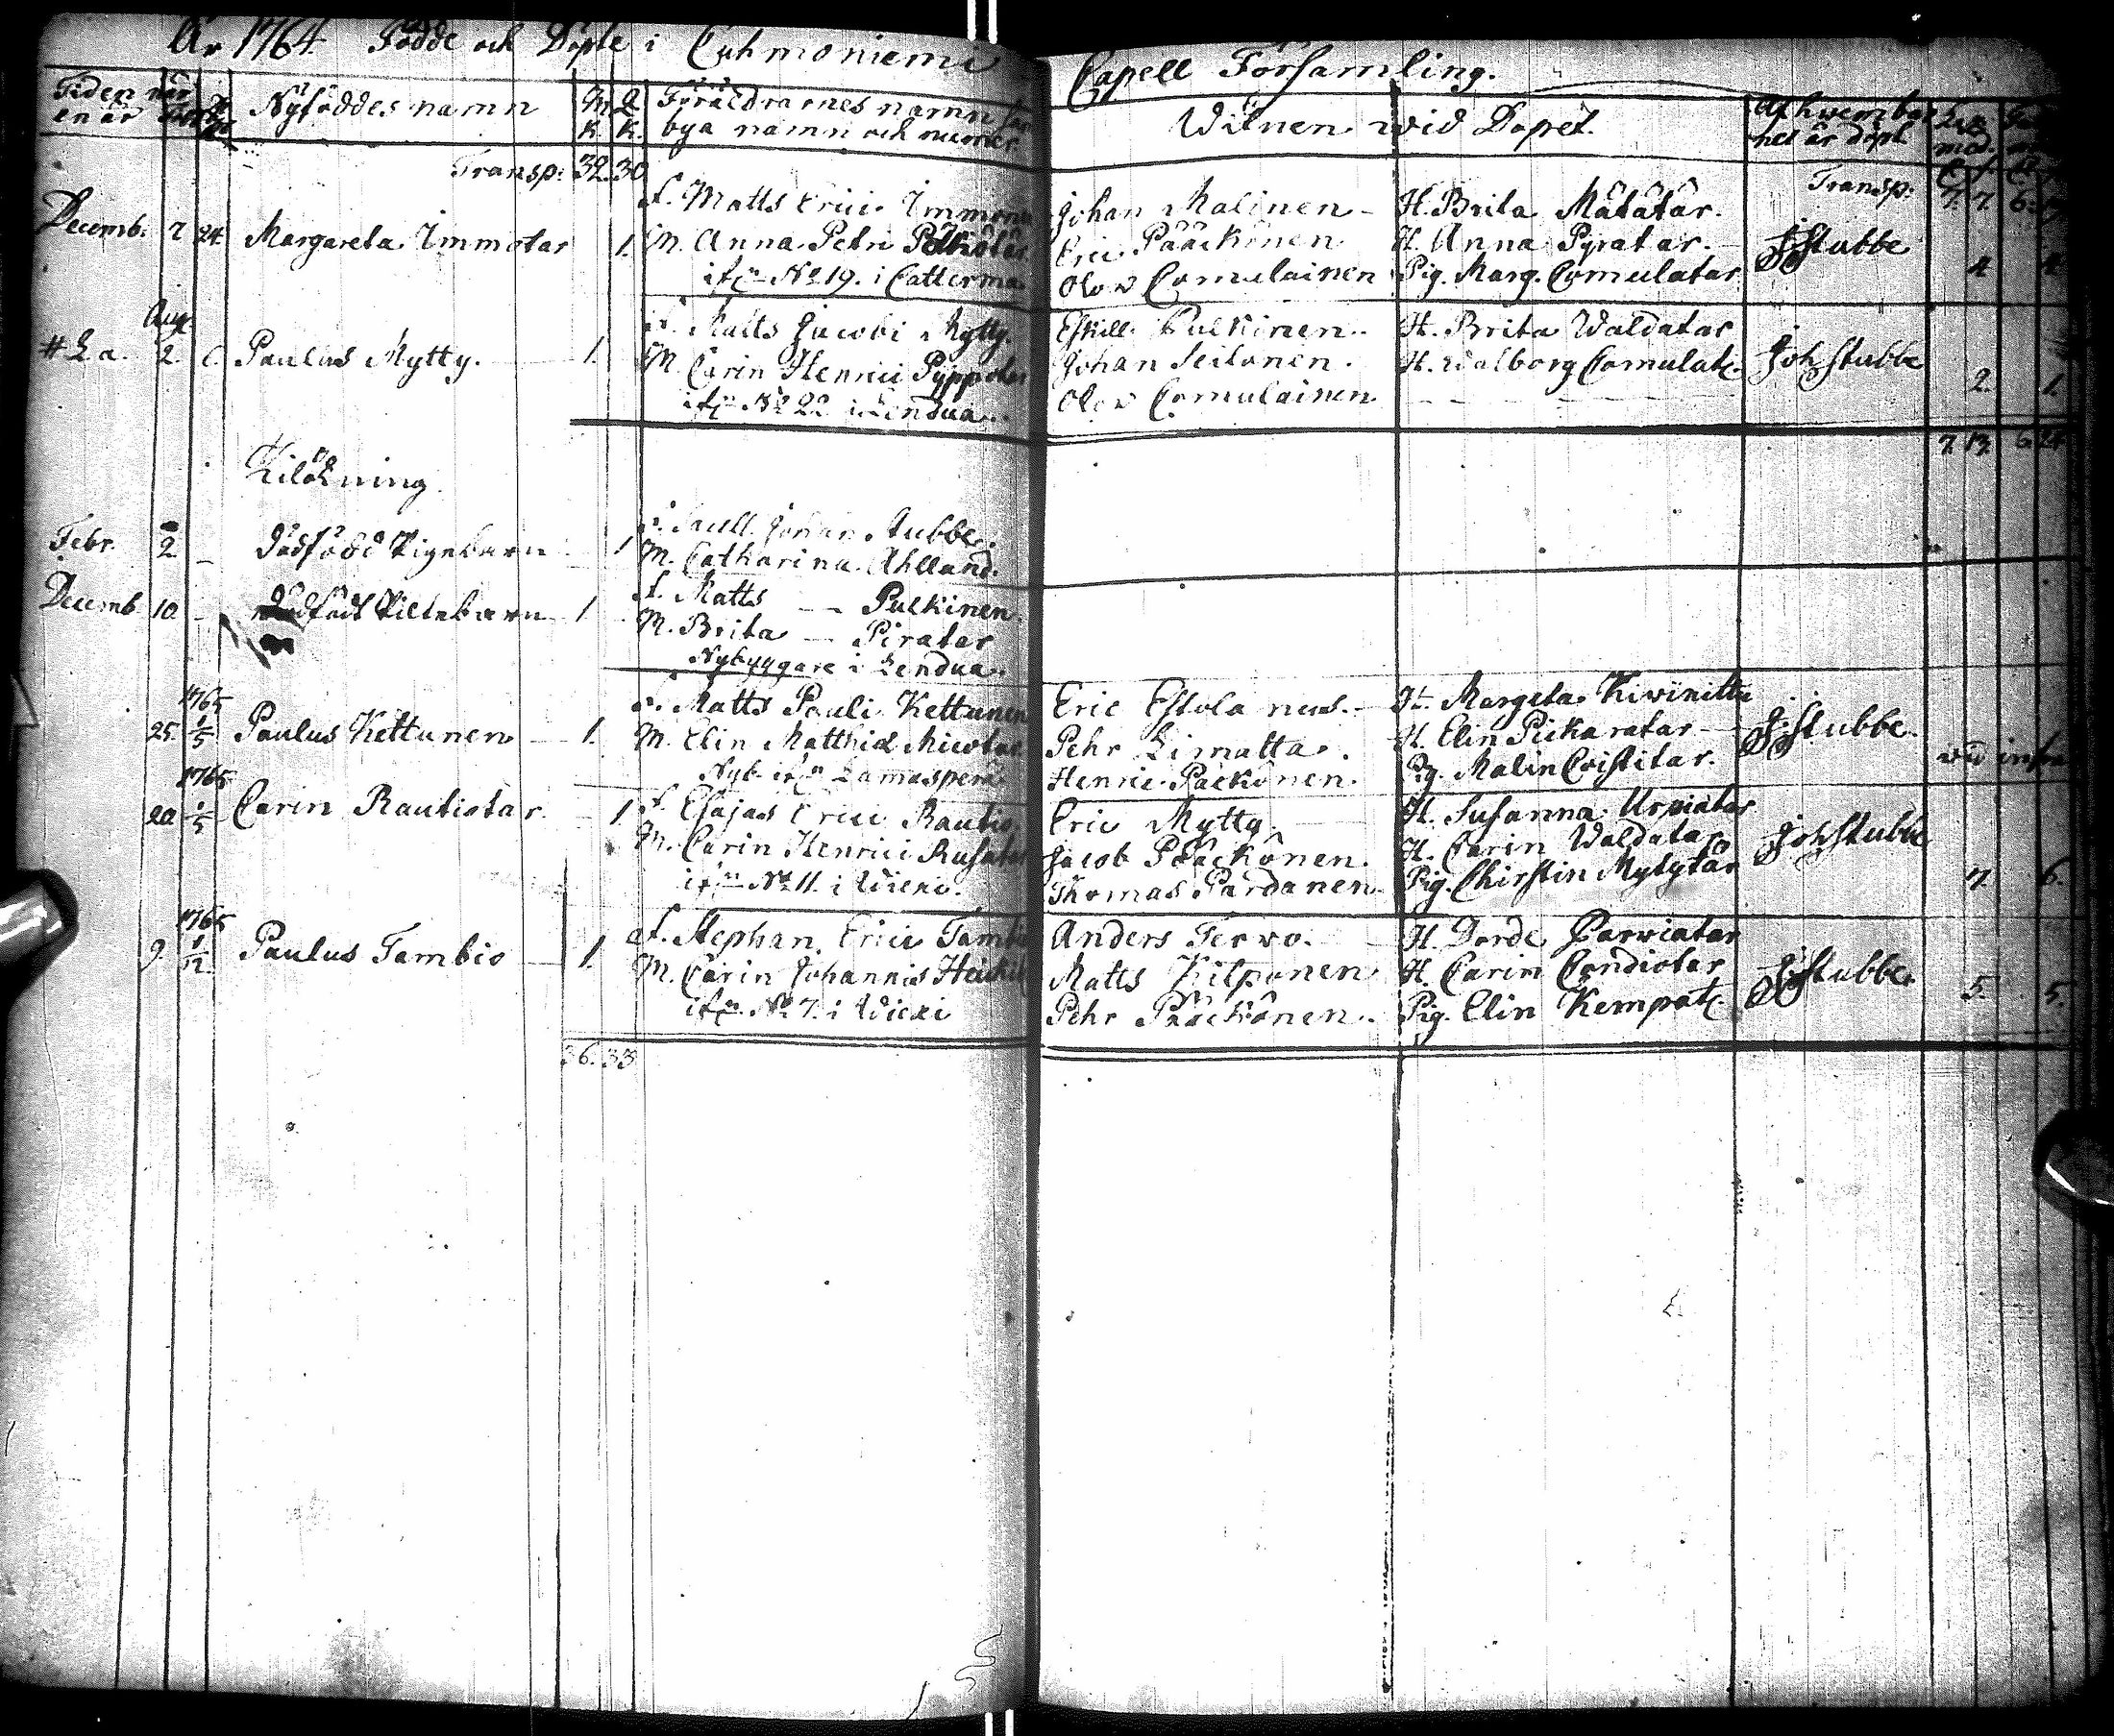 År 1764. Födde och Döpte i Cuhmoniemi Capell Församling.
Tiden när
en är
Nyföddes namn
M. Q.
K. K.
Föräldrarnes namn
bya namn och numer
Witnen wid Dopet.
Af hwem bar
net är döpt
Transp: 32. 30
Transp: 7. 7. 6.
Decemb. 7 24. Margareta Immotar 1.
F. Matts Erici Immone
M. Anna Petri
No 19. i Catterma
Johan Malinen
Eric Pääckönen
Olov Comulainen
H. Brita Mätätär.
H. Anna Pyratar.
Pig. Marg. Comulatar
J Stubbe 4
Aug.
# La. 2 Paulus Mytty. 1.
F. Matts Jacobi Mytty.
M. Carin Henrici Pyppotar
No 22 i Lendua.
Eskill Pulkinen.
Johan Seilonen.
Olov Comulainen
H. Brita Waldatar
H. Walborg Comulat:
Joh Stubbe 2. 1.
7. 13. 6. 24
Tilökning
Febr. 2 dödfödd Pigebarn 1
F. Sacell. Johan Stubbe.
M. Catharina Ahllund.
Decemb. 10 dödfödt Piltebarn 1
F. Matts Pulkinen.
M. Brita Piratar
Nybyggare i Lendua.
1765
25. 1/5 Paulus Kettunen 1.
F. Matts Pauli Kettunen
M. Elin Matthiæ Micotar
Nyb. Lamasperä
Eric Estola
Pehr Limatta.
Henric Päckönen.
H. Margeta Kivinitty
H. Elin Pickaratar
Pg. Malin Cristitar.
J Stubbe.
vid infra
1765
20 1/5 Carin Rautiotar. 1
F. Esajas Erici Rautio
M. Carin Henrici
No 11. i Wieki.
Eric Mytty
Jacob Pääckönen.
Thomas Pardanen
H. Susanna Urviatar
H. Carin Waldatar
Pig. Chirstin Mytytär
Joh Stubbe
7. 6.
1765
9. 1/12 Paulus Tambio 1.
F. Stephan Erici Tambio
M. Carin Johannis
No 7. i Wieki
Anders Tervo.
Matts Kilponen
Pehr Pääckönen.
H. Dorde Carviatar
H. Carin Condiotar
Pig. Elin Kempat:
J Stubbe. 5. 5.
36. 33